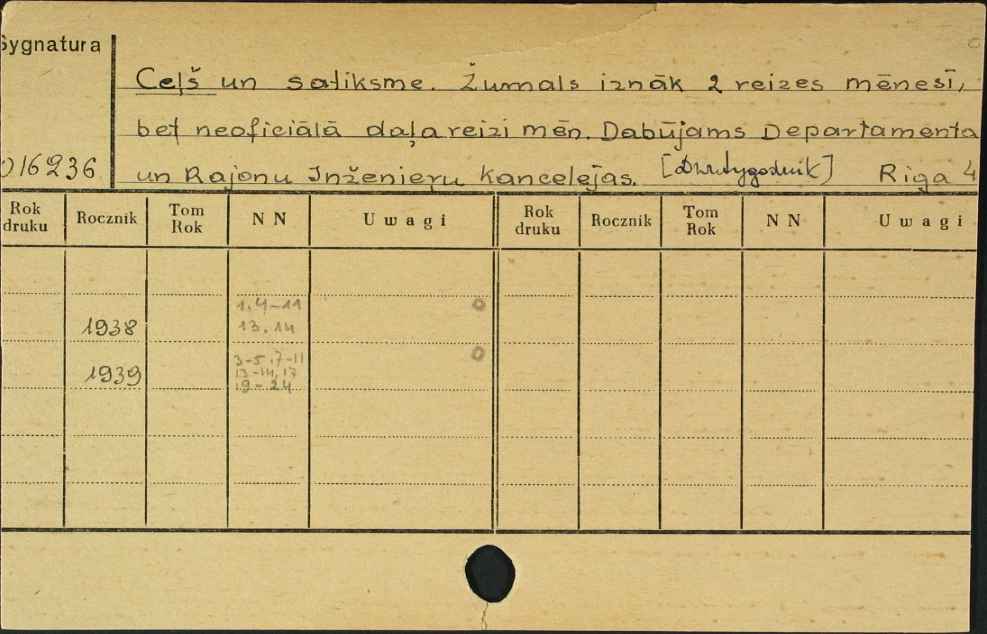 Sygnatura
Ceļš un satiksme. Žurnals iznāk 2 reizes mēnesī,
bet neoficiālā daļa reizi mēn. Dabūjams Departamenta
016236
un Rajonu Inženieŗu Kancelejas. [Dwutygodnik] Riga 4
Rok druku Rocznik Tom Rok N N Uwagi Rok druku Rocznik Tom Rok N N Uwagi
1.4-11
1938 13.14
3-5.7-11
1939 13-14.17
19-24